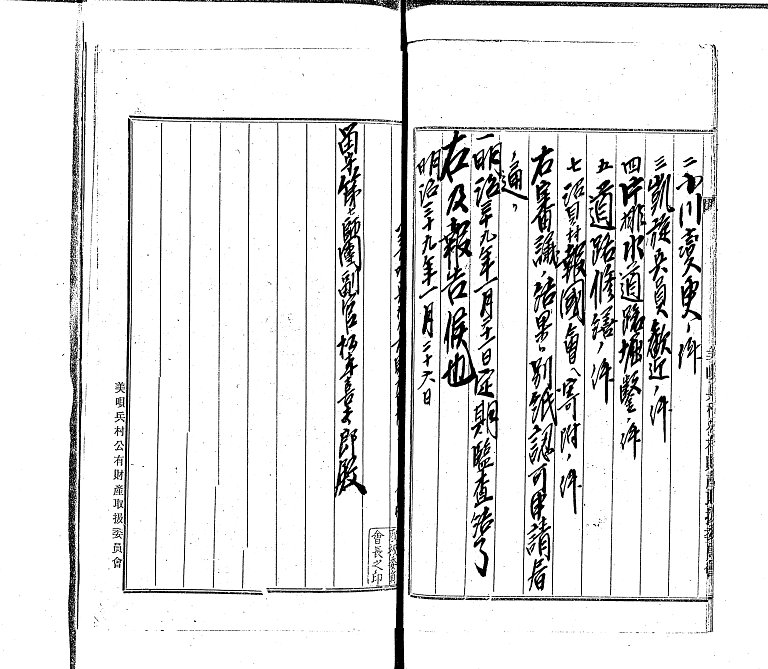 二 川変更ノ件
三 凱旋兵員歓迎ノ件
四 片排水道路堀鑿ノ件
五 道路修繕ノ件
七 沼貝村報國會ヘ寄附ノ件
右審議ノ結果ハ別紙認可申請書
ノ通リ
一明治三十九年一月二十一日定期監査結了
右及報告候也
明治三十九年一月二十六日
會長之印
留守第七師團副官 喜太郎殿
美唄兵村公有財産取扱委員會